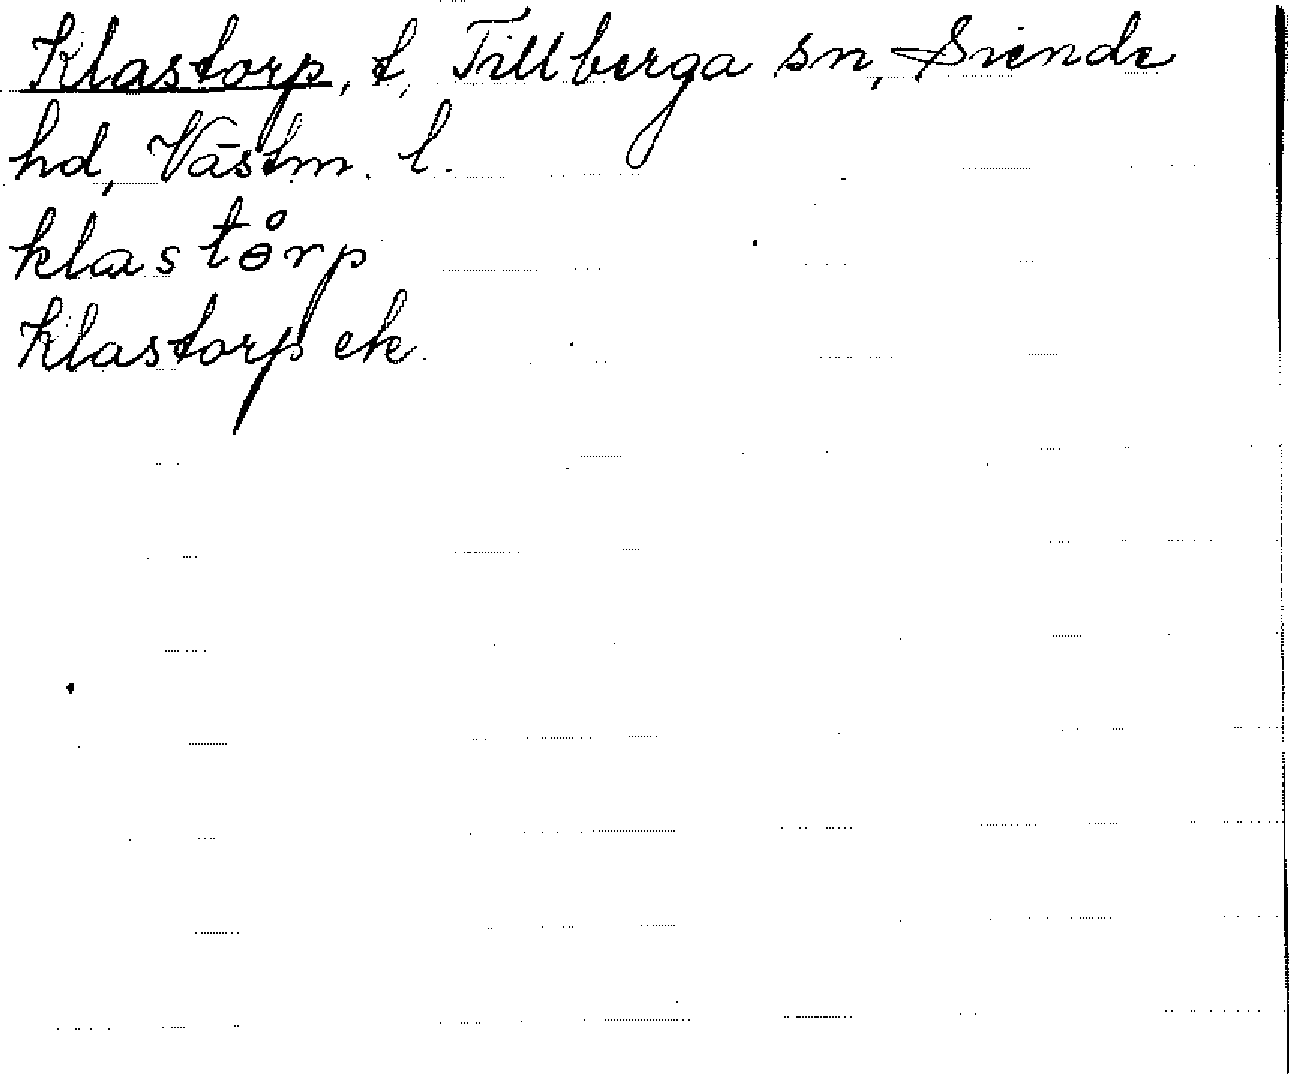 Klastorp, t, Tillberga sn, Siende
hd, Västm. l.
klastɵ̊rp
Klastorp ek.